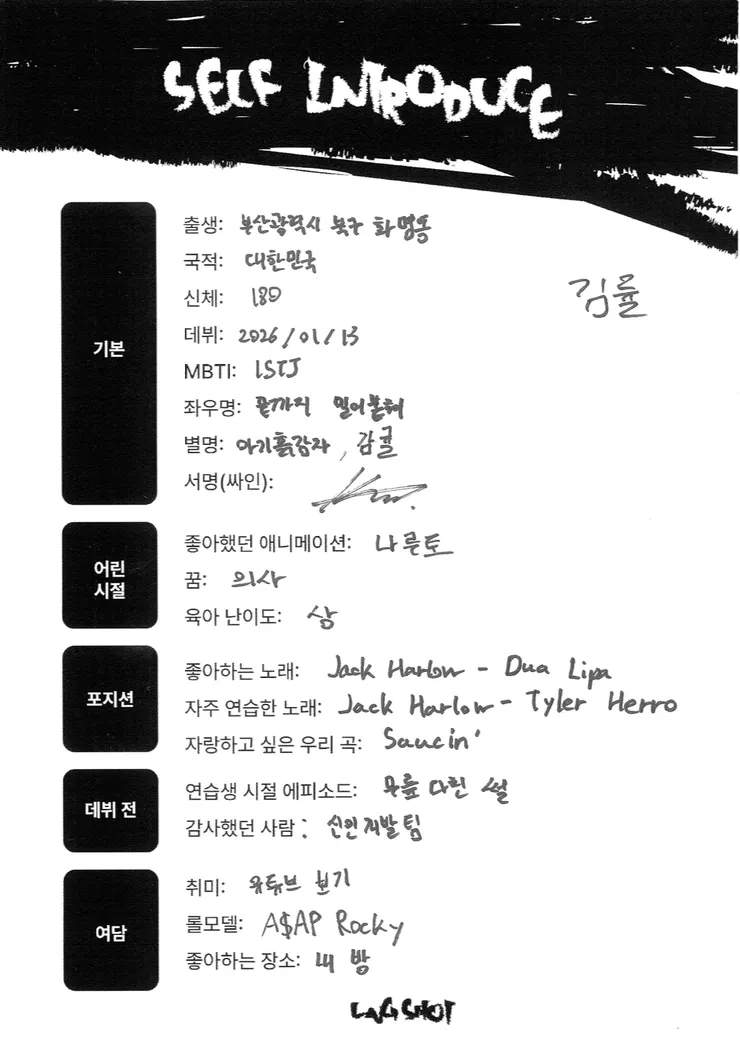 SELF INTRODUCE
기본
출생: 부산광역시 북구 화명동
국적: 대한민국
신체: 180
김률
데뷔: 2026/01/13
MBTI: ISTJ
좌우명: 끝까지 밀어붙혀
별명: 아기흙감자, 감귤
서명(싸인):
어린 시절
좋아했던 애니메이션: 나루토
꿈: 의사
육아 난이도: 상
포지션
좋아하는 노래: Jack Harlow - Dua Lipa
자주 연습한 노래: Jack Harlow - Tyler Herro
자랑하고 싶은 우리 곡: Saucin'
데뷔 전
연습생 시절 에피소드: 무릎 다친 썰
감사했던 사람: 신인개발팀
여담
취미: 유튜브 보기
롤모델: A$AP Rocky
좋아하는 장소: 내 방
LNGSHOT